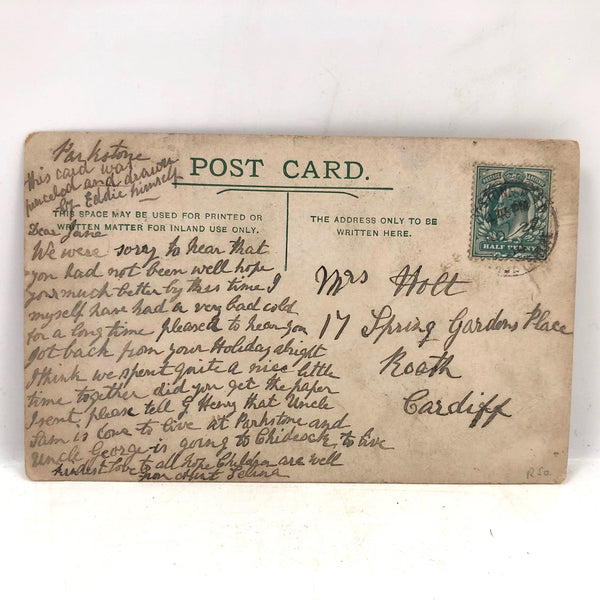 Parkstone
this card was
penceled and drawn
by Eddie himself
POST CARD.
THIS SPACE MAY BE USED FOR PRINTED OR
WRITTEN MATTER FOR INLAND USE ONLY.
THE ADDRESS ONLY TO BE
WRITTEN HERE.
HALF PENNY
Dear Jane
We were sorry to hear that
you had not been well hope
your much better by this time I
myself have had a very bad cold
for a long time pleased to hear you
got back from your Holiday alright
I think we spent quite a nice little
time together did you get the paper
I sent please tell G Henry that Uncle
Sam is Come to live at Parkstone and
Uncle George is going to Chideock to live
kindest Love to all hope Children are well
from Aunt Selina
Mrs Holt
17 Spring Gardens Place
Roath
Cardiff